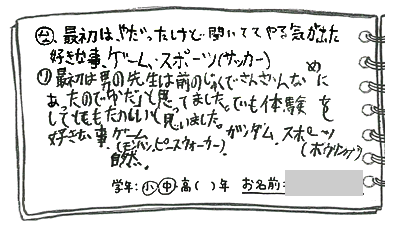 ㊥、最初は、やだったけど 聞いててやる気がでた
好きな事、ゲーム、スポーツ(サッカー)
㋷最初は男の先生は前のじゅくでさんざんなめ
にあったので「やだ」と思ってました。でも体験を
してとてもたのしいと思いました。
好きな事、ゲーム、ガンダム スポーツ
(モンハン,ピースウォーカー) (ボウリング)
自然、
学年:小 中・高( )年 お名前: